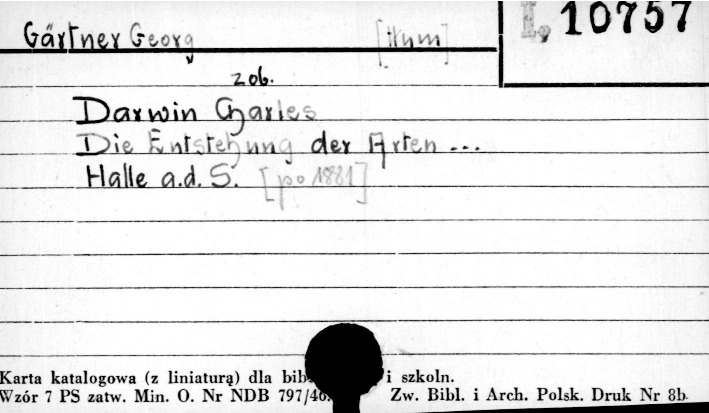 I, 10757
Gärtner Georg [tłum]
zob.
Darwin Charles
Die Entstehung der Arten ...
Halle a.d. S. [po 1881]
Karta katalogowa (z liniaturą) dla bib i szkoln.
Wzór 7 PS zatw. Min. O. Nr NDB 797/46. Zw. Bibl. i Arch. Polsk. Druk Nr 8b.